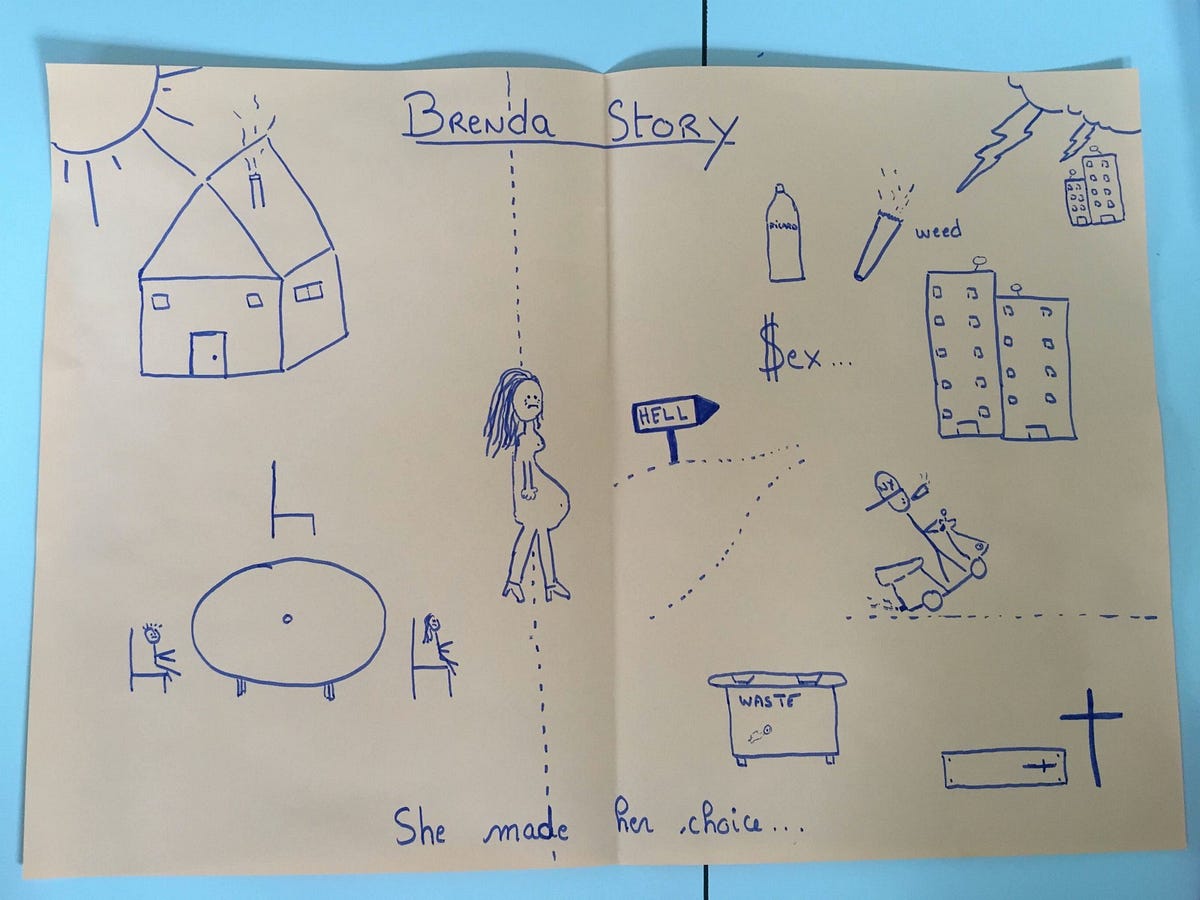 BRENDA STORY
PICARD
weed
$ex...
HELL
NY
WASTE
She made her choice...